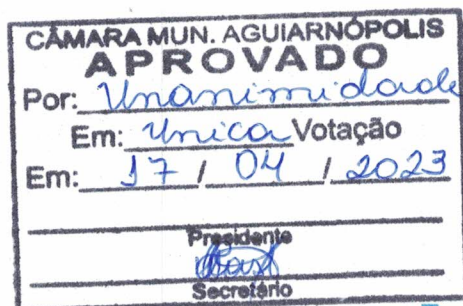 CÂMARA MUN. AGUIARNÓPOLIS
APROVADO
Por: Unanimidade
Em: Unica Votação
Em: 17 / 04 / 2023
Presidente
Secretário